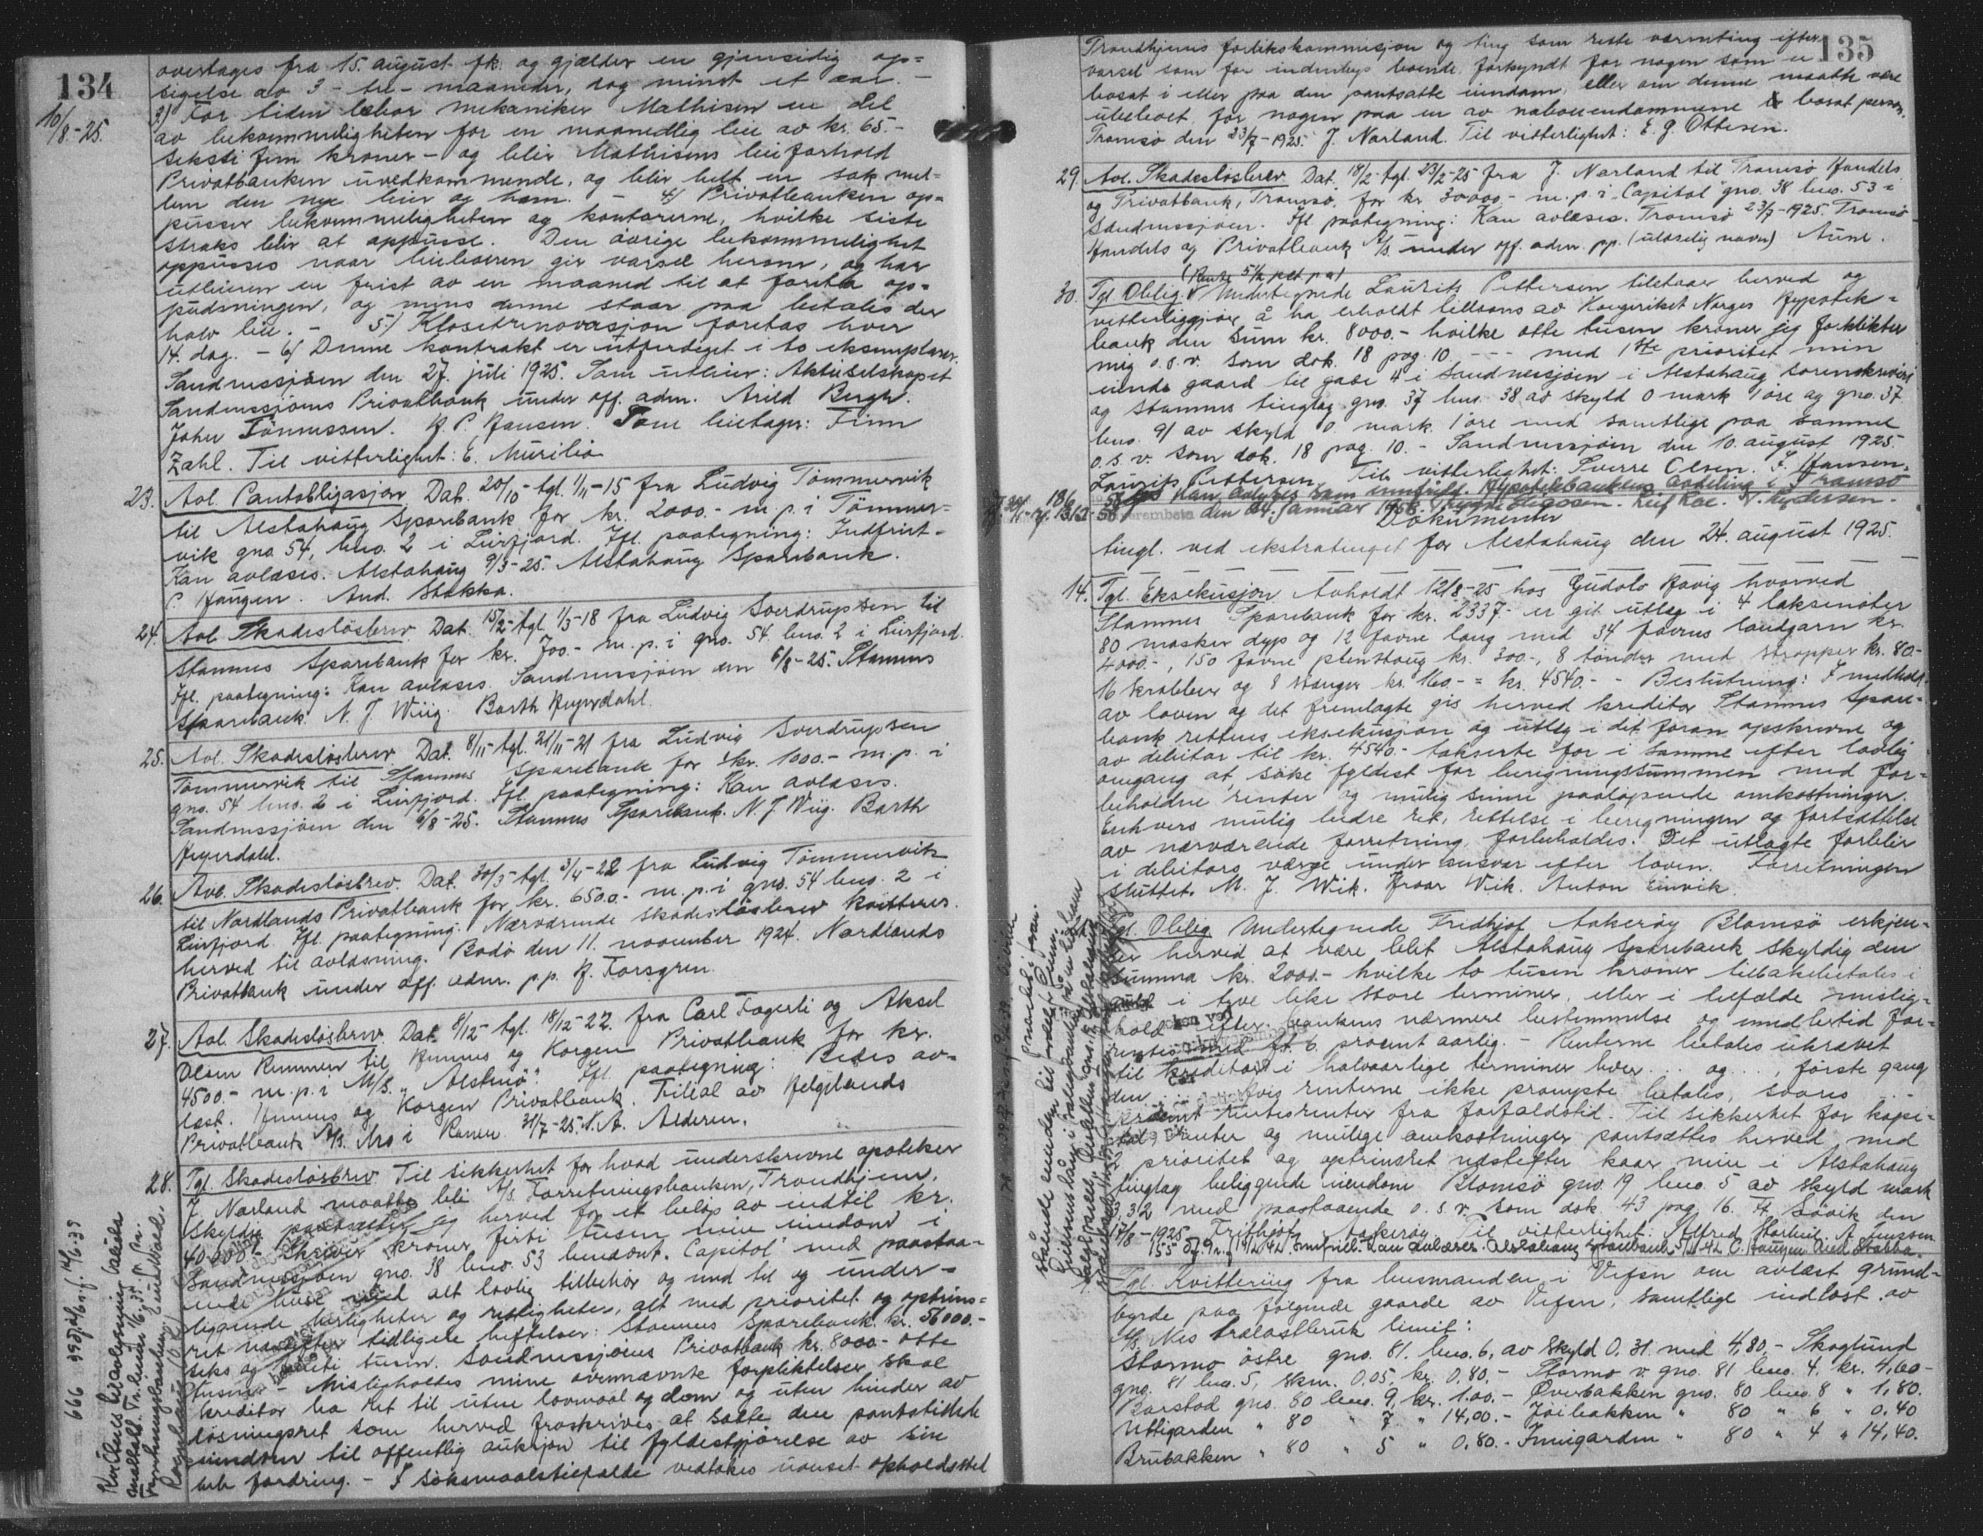 134
10/8-25.
overtages fra 15. august fk. og gjælder en gjensidig op-
sigelse av 3 - tre - maaneder, dog minst et aar. -
3) For tiden lebor mekaniker Mathisen en del
av bekvemmeligheten for en maanedlig leie av kr. 65.-
seksti fem kroner - og blir Mathisens leieforhold
Privatbanken uvedkommende, og blir helt en sak mel-
lem den nye leier og ham. - 4) Privatbanken op-
pusser bekvemmeligheten og kontorerne, hvilke siste
straks blir at oppusse. Den øvrige bekvemmelighet
oppusses naar leieboeren gir varsel herom, og har
utleieren en frist av en maaned til at foreta op-
pudsningen, og mens denne staar paa betales der
halv leie. - 5) Klosetrenovasjon foretas hver
14. dag. - 6) Denne kontrakt er utferdiget i to eksemplarer.
Sandnessjøen den 27. juli 1925. Som utleier: Aktieselskapet
Sandnessjøens Privatbank under off. adm. Arild Bergh.
Joher Tönnessen. H. P. Hansen. Som leietager: Finn
Zahl. Til vitterlighet: E. Meisilio
23. Avl. Pantobligasjon Dat. 20/10- tgl. 1/11-15 fra Ludvig Tömmervik
til Alstahaug Sparebank for kr. 2000.- m.p. i Tömmer-
vik gno 54, bno. 2 i Leirfjord. Ifl. paategning: Indfriet-
Kan avlæses. Alstahaug 9/3-25. Alstahaug Sparebank.
P. Haugen. And. Stokka.
24. Avl. Skadesløsbrev Dat. 15/2- tgl. 1/3-18 fra Ludvig Sverdrupsen til
Stamnes Sparebank for kr. 700.- m.p. i gno. 54. bno. 2 i Leirfjord.
Ifl. paategning: Kan avlæses. Sandnessjøen den 6/8-25. Stamnes
Sparebank. N. J. Wiig. Barth Heyerdahl.
25. Avl. Skadesløsbrev Dat. 8/11- tgl. 21/11-21 fra Ludvig Sverdrupsen
Tömmervik til Stamnes Sparebank for kr. 1000.- m.p. i
gno. 54 bno. 2 i Leirfjord. Ifl. paategning: Kan avlæses.
Sandnessjøen den 6/8-25. Stamnes Sparebank. N. J. Wiig. Barth
Heyerdahl.
26. Avl. Skadesløsbrev. Dat. 30/3- tgl. 3/4-22 fra Ludvig Tömmervik
til Nordlands Privatbank for kr. 6500.- m.p. i gno. 54 bno. 2 i
Leirfjord. Ifl. paategning: Nærværende skadesløsbrev kvitteres
herved til avlæsning. Bodö den 11. november 1924. Nordlands
Privatbank under off. adm. p.p. H. Forsgren.
27. Avl. Skadesløsbrev. Dat. 8/12- tgl. 18/12-22. fra Carl Fagerli og Aksel
Olsen Remmen til Hemnes og Korgen Privatbank for kr.
4500.- m.p. i M/S. "Alstenö". Ifl. paategning: Bedes av-
læst. Hemnes og Korgen Privatbank. Filial av Helgelands
Privatbank A/S. Mo i Ranen 31/7-25. N. A. Alderen.
28. Tgl. Skadesløsbrev Til sikkerhet for hvad underskrevne apoteker
J. Narland maatte bli A/S. Forretningsbanken, Trondhjem,
skyldig pantsetter jeg herved for et beløp av indtil kr.
40.000.- kroner firti tusen min eiendom i
Sandnessjøen gno. 38 bno. 53 benævnt. Capitol med paastaa-
ende huse med alt lovlig tilbehör og med til og under-
liggende herligheter og rettigheter, alt med prioritet og optrins-
ret næstefter tidligere heftelser: Stamnes Sparebank kr. 56000.-
seks og femti tusen. Sandnessjøens Privatbank kr. 8000.- otte
tusen. - Misligholdes mine overnævnte forpliktelser skal
kreditor ha ret til uten lovmaal og dom og uten hinder av
løsningsret som herved fraskrives at sætte den pantstillede
eiendom til offentlig auksjon til fyldestgjörelse av sin
hele fordring. - I søksmaalstilfælde vedtakes uanset opholdssted
666 395, 16/6 35
135
Trondhjems forlikskommisjon og ting som rette værneting efter
varsel som for indenbys boende, forkyndt for nogen som er
bosat i eller paa den pantsatte eiendom, eller om denne maatte være
ubebodd for nogen paa en av naboeiendommene bosat person.
Tromsø den 23/7-1925. J. Narland. Til vitterlighet: E. G. Ottesen.
29. Avl. Skadesløsbrev Dat. 18/2- tgl. 23/2-25 fra J. Narland til Tromsø Handels
og Privatbank, Tromsø, for kr. 30000.- m.p. i Capitol gno. 38 bno. 53 i
Sandnessjøen. Ifl. paategning: Kan avlæses. Tromsø 23/7-1925. Tromsø
Handels og Privatbank A/S. under off. adm. pp. (ulæselig navn) Aune.
(Rente 5½ pct p.a.)
30. Tgl. Oblig. Undertegnede Laurits Pettersen tilstaaer herved og
vitterliggjør å ha erholdt tillaans av Kongeriket Norges Hypotek-
bank den sum kr. 8000.- hvilke otte tusen kroner jeg forplikter
mig o.s.v. som dok. 18 pag. 10 --- med 1ste prioritet min
eiende gaard til gate 4 i Sandnessjøen i Alstahaug sorenskriveri
og Stamnes tinglag gno. 37 bno. 38 av skyld 0 mark 1 øre og gno. 37
bno. 91 av skyld 0 mark 1 øre med samtlige paa samme
o.s.v. som dok. 18 pag. 10. - Sandnessjøen den 10. august 1925
Laurits Pettersen. Til vitterlighet: Sverre Olsen. F. Hansen.
Kan avlyses som innfridd. Hypotekbankens avdeling i Tromsø
den 24. januar 1956. Leif Roe. Pedersen.
Dokumenter
tingl. ved ekstratinget for Alstahaug den 24. august 1925.
14. Tgl. Eksekusjon Avholdt 12/8-25 hos Gudolv Havig hvorved
Stamnes Sparebank for kr. 2337.- er git utlæg i 4 laksenöter
80 masker dyp og 12 favne lang med 34 favnes landgarn kr.
4000.-, 150 favne kr. 300.-, 8 tönder med stropper kr. 80.-
16 krabber og 8 stænger kr. 160.- = kr. 4540.- - Beslutning: I medhold
av loven og det fremlagte gis herved kreditor Stamnes Spare-
bank rettens eksekusjon og utlæg i det foran opskrevne og
av debitor til kr. 4540.- takserte for i samme efter lovlig
omgang at søke fyldest for beregningssummen med for-
beholdne renter og mulig senere paalöpende omkostninger.
Enhvers mulig bedre ret, rettelse i beregningen og fortsættelse
av nærværende forretning forbeholdes. Det utlagte forblir
i debitors værge under ansvar efter loven. Forretningen
sluttet. M. J. Wik. Hroar Wik. Anton Einvik.
Tgl. Oblig Undertegnede Fridhjof Aakerøy Blomsö erkjen-
ner herved at være blit Alstahaug Sparebank skyldig den
summa kr. 2000.- hvilke to tusen kroner tilbakebetales i
i tyve like store terminer, eller i tilfælde mislig-
hold efter bankens nærmere bestemmelse og imidlertid for-
rentes med ft. 6 procent aarlig. - Renterne betales ukrævet
til kreditor i halvaarlige terminer hver ... og ..., første gang
den ... Hvis renterne ikke prompte betales, svares ...
procent rentesrenter fra forfaldstid. Til sikkerhet for kapi-
tal, renter og mulige omkostninger pantsættes herved med
2 prioritet og optrinsret næstefter kaar min i Alstahaug
tinglag beliggende eiendom Blomsö gno. 19 bno. 5 av skyld mark
3.32 med paastaaende o.s.v. som dok. 43 pag. 16. Ft. Søvik den
17/8-1925. Fridhjof Aakerøy. Til vitterlighet: Alfred A. Jenssen
innfridd. Kan avlæses. Alstahaug Sparebank 5/11 42 C. Haugen And Stokka.
Tgl. Kvittering fra husmanden i Vefsn om avløst grund-
byrde paa følgende gaarde av Vefsn, samtlige indløst av
A/S. Nes Trælastbruk limit:
Stormo østre gno. 81. bno. 6, av skyld 0.31. med 4,80.- Skoglund
gno. 81 bno. 5, skm. 0.05, kr. 0.40.- Stormo v. gno. 81 bno. 4. kr. 4,60-
Barstad gno. 80 bno. 9, kr. 1.00.- Øverbakken gno. 80 bno. 8 " 1,80.
Uttigarden " 80 " 7 " 14,00.- Jøibakken " 80 " 6 " 0,40
Brubakken " 80 " 5 " 0,80.- Innigarden " 80 " 4 " 14,40.